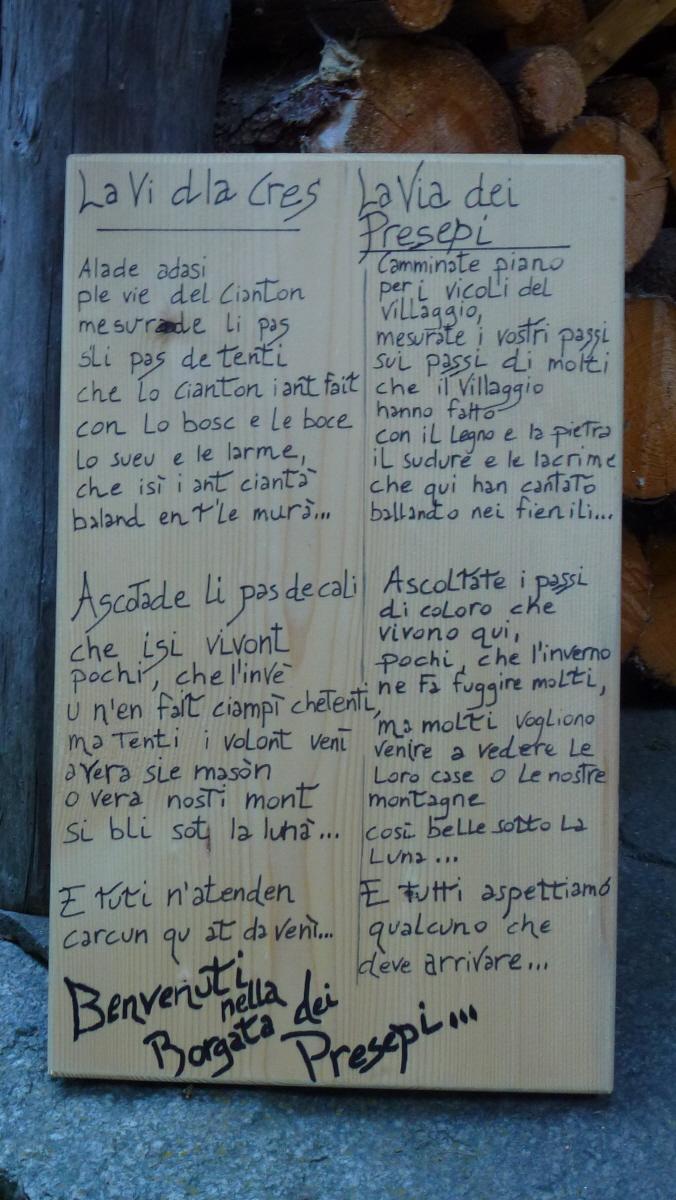 La Vi dla Cres
Alade adasi
ple vie del Cianton
mesurade li pas
sli pas de tenti
che lo cianton i ant fait
con lo bosc e le boce
lo sueu e le larme,
che isì i ant ciantà
baland en t'le murà...
Ascotade li pas de cali
che isi vivont
pochi, che l'invè
u n'en fait ciampì che tenti,
ma tenti i volont venì
a vera sie masòn
o vera nosti mont
si bli sot la luna...
E tuti n'atenden
carcun qu at da venì...
La Via dei
Presepi
Camminate piano
per i vicoli del
villaggio,
mesurate i vostri passi
sui passi di molti
che il villaggio
hanno fatto
con il legno e la pietra
il sudure e le lacrime
che qui han cantato
ballando nei fienili...
Ascoltate i passi
di coloro che
vivono qui,
pochi, che l'inverno
ne fa fuggire molti,
ma molti vogliono
venire a vedere le
loro case o le nostre
montagne
così belle sotto la
Luna...
E tutti aspettiamo
qualcuno che
deve arrivare...
Benvenuti
nella
Borgata dei
Presepi...